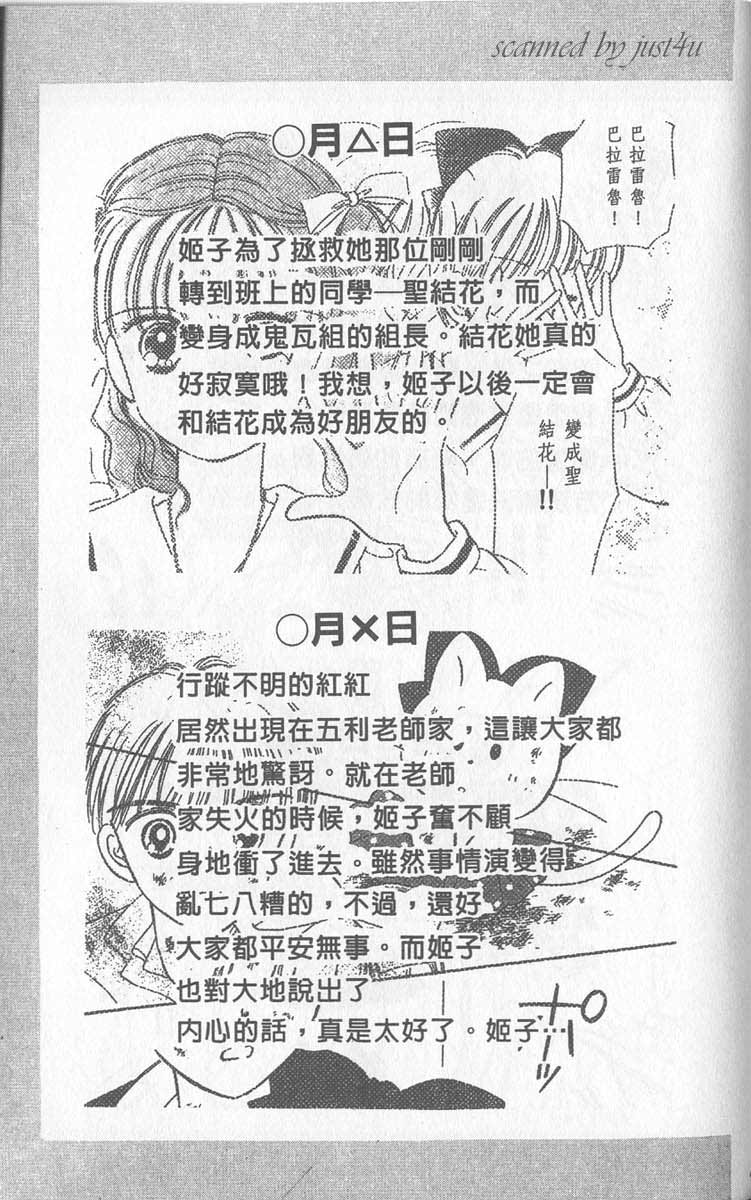 scanned by just4u
○月△日
巴拉雷魯！
巴拉雷魯！
姬子為了拯救她那位剛剛
轉到班上的同學─聖結花，而
變身成鬼瓦組的組長。結花她真的
好寂寞哦！我想，姬子以後一定會
和結花成為好朋友的。
變成聖
結花─!!
○月×日
行蹤不明的紅紅
居然出現在五利老師家，這讓大家都
非常地驚訝。就在老師
家失火的時候，姬子奮不顧
身地衝了進去。雖然事情演變得
亂七八糟的，不過，還好，
大家都平安無事。而姬子
也對大地說出了
內心的話，真是太好了。姬子…